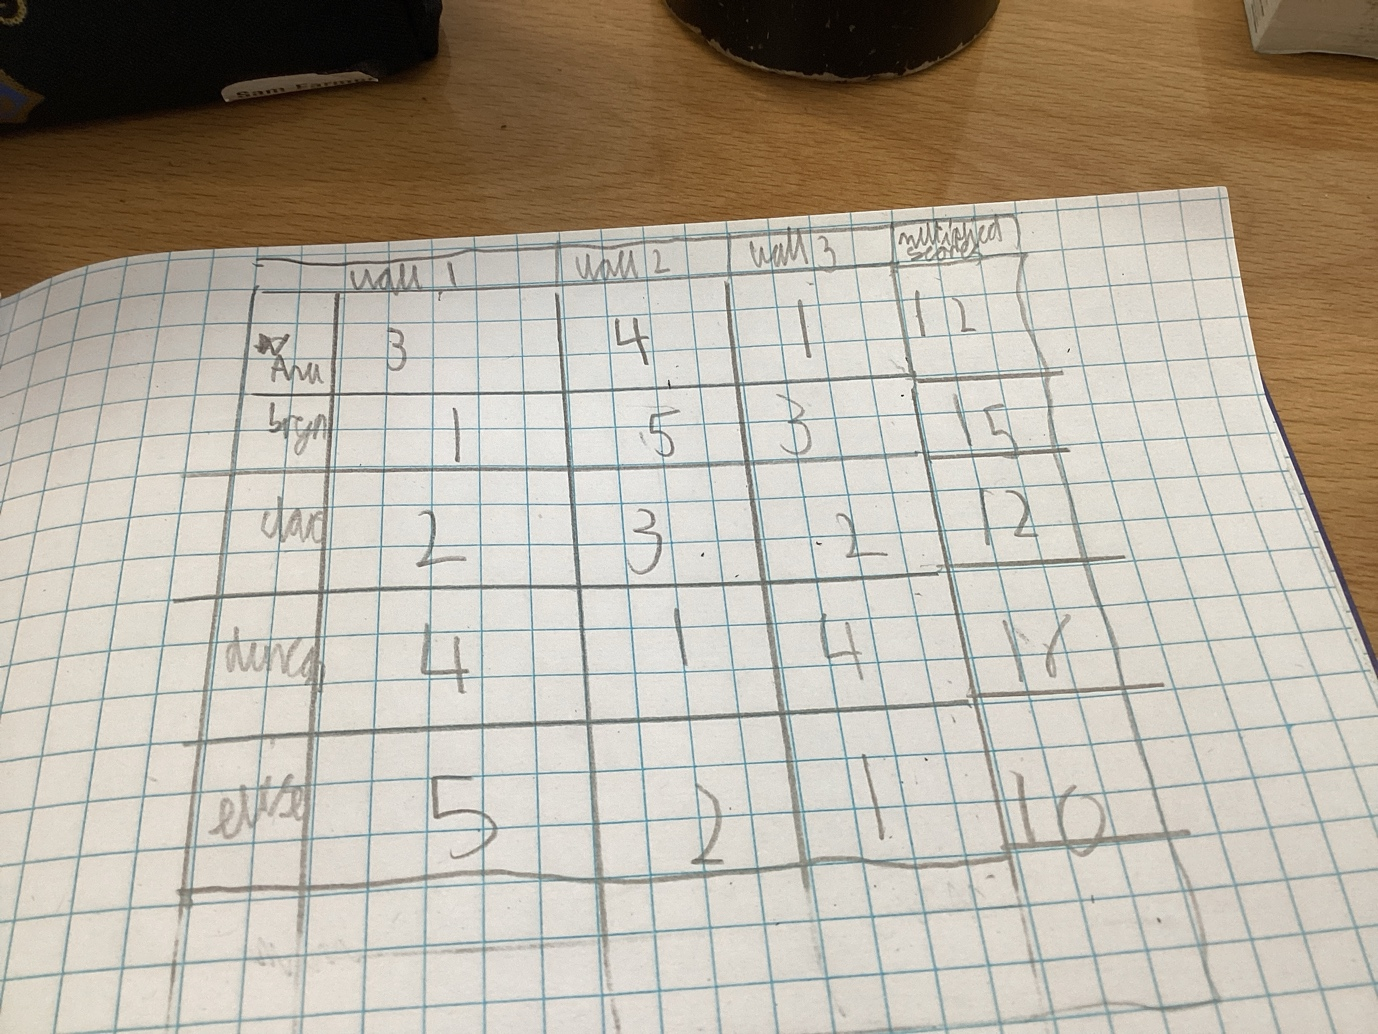 Sam Farmer
wall 1 wall 2 wall 3 multiplied
scores
Anu 3 4 1 12
bryn 1 5 3 15
clare 2 3 2 12
4 1 4 16
elise 5 2 1 10